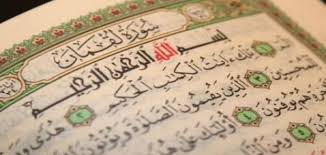 سورة لقمان
بسم الله الرحمن الرحيم
١ تلك ءايت الكتب الحكيم ٢
للمحسنين ٣ الذين يقيمون الصلوة ويؤتون
يوقنون ٤ أولئك على هدى
٥ ومن